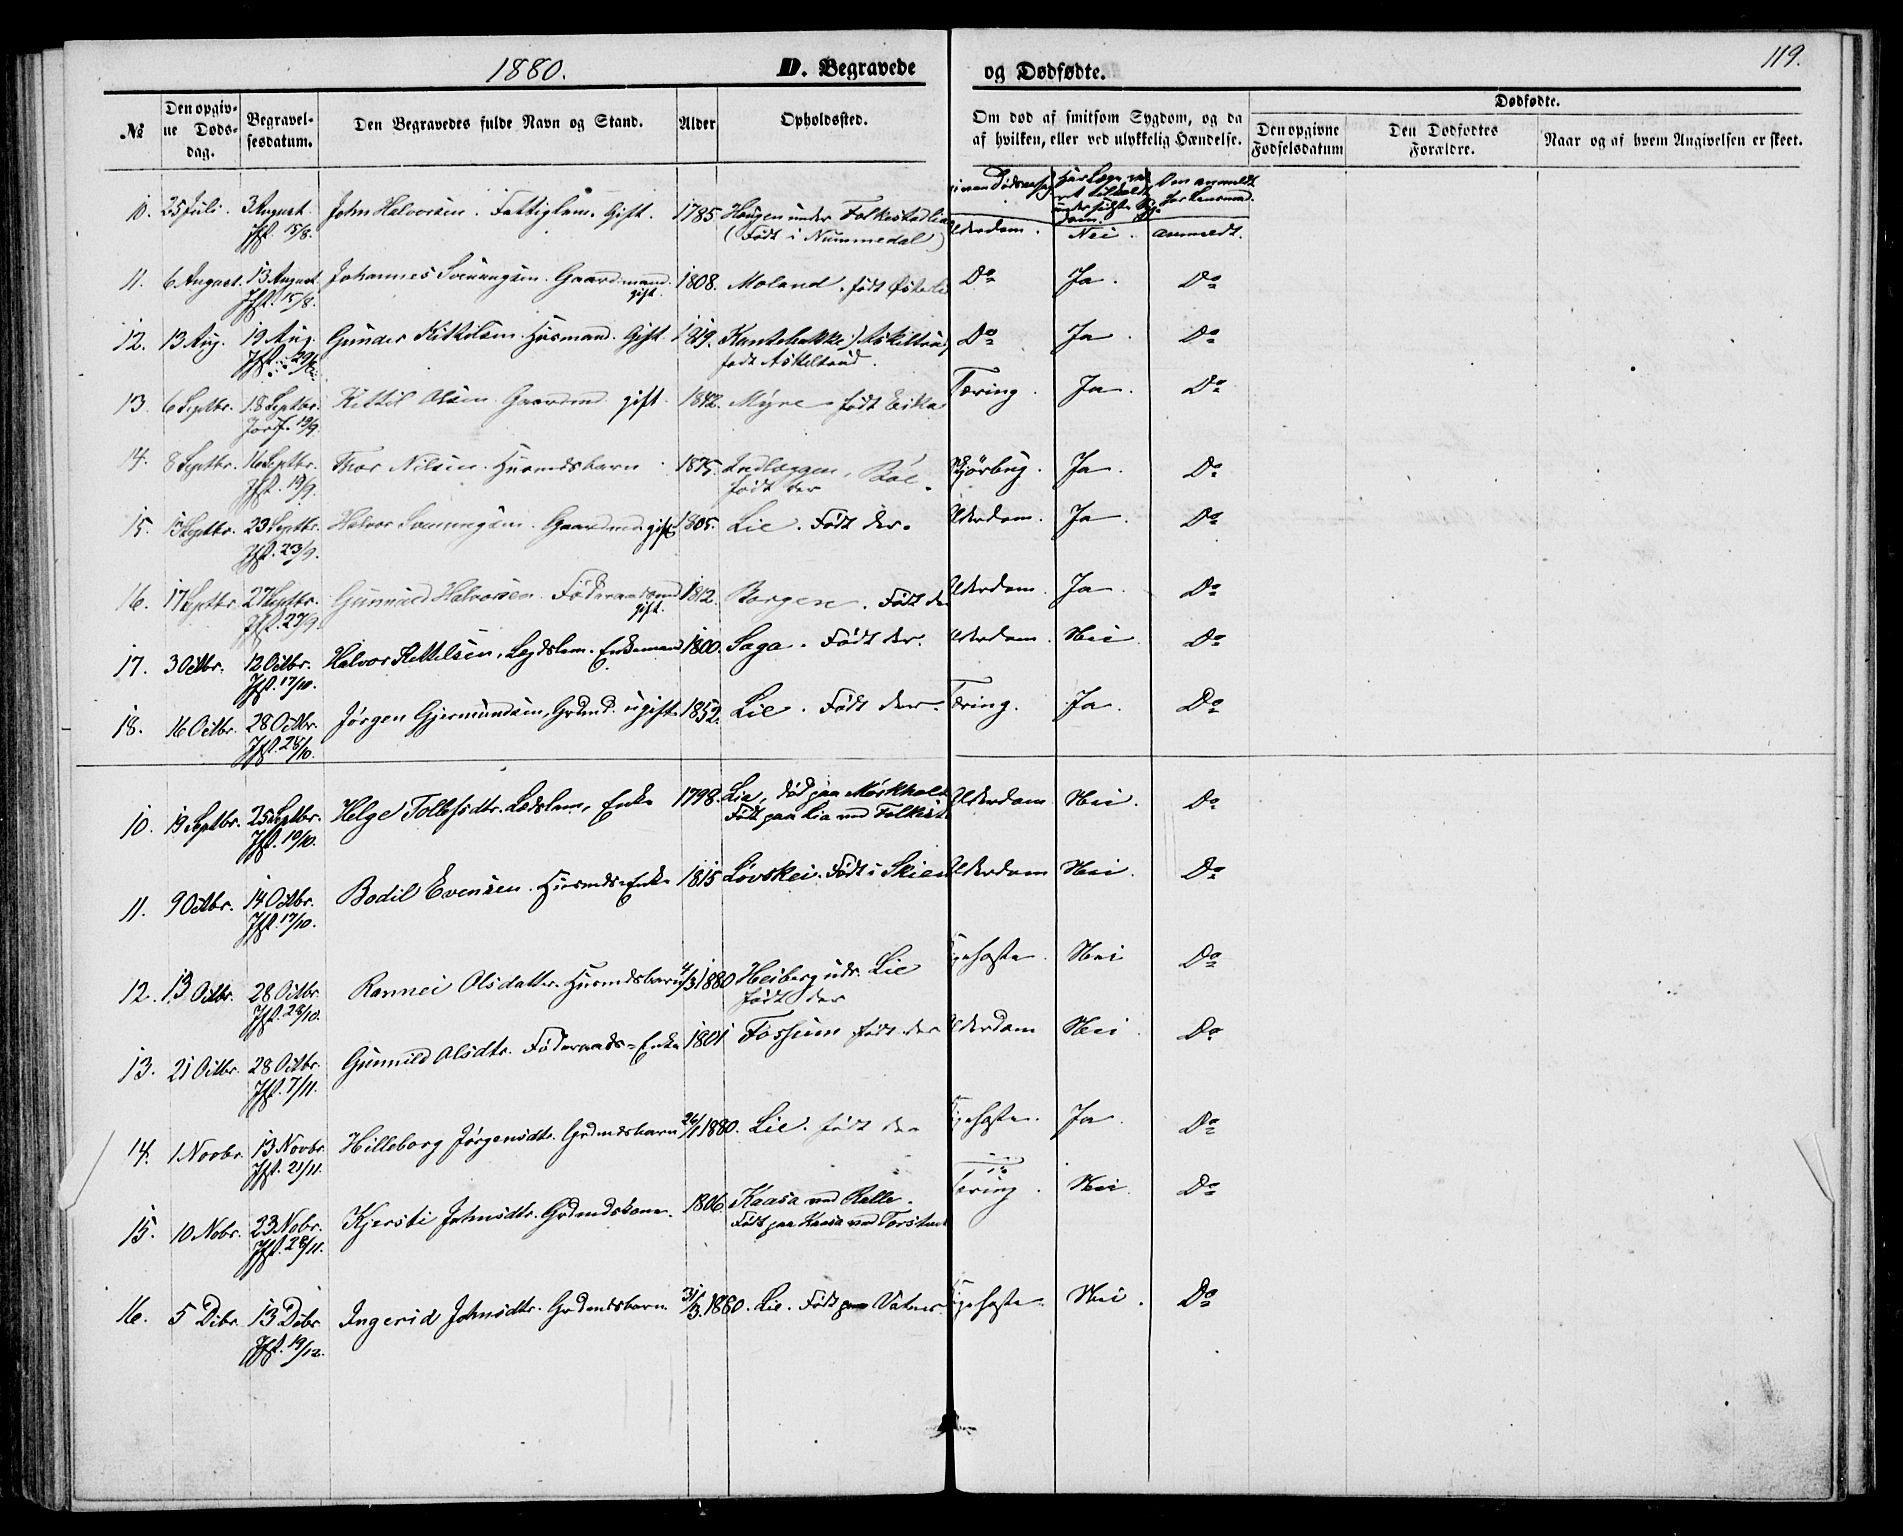 1880. D. Begravede og Dødfødte. 119.
№ Den opgivne Dødsdag. Begravelsesdatum. Den Begravedes fulde Navn og Stand. Alder Opholdssted. Om død af smitsom Sygdom, og da af hvilken, eller ved ulykkelig Hændelse. Dødfødte.
Den opgivne Fødselsdatum Den Dødfødtes Forældre. Naar og af hvem Angivelsen er skeet.
10. 25 Juli. 3 August. John Halvorsen. Fattiglem. Gift. 1785. Haugen under Folkestadlia
Jfst. 15/8. (Født i Nummedal) Alderdom. Nei. anmeldt.
11. 6 August. 13 August Johannes Svenungsen. Gaardmand. 1808. Moland. født Østerli Do Ja. Do
Jfst. 15/8. gift.
12. 13 Aug. 19 Aug. Gunder Kittilsen. Husmand. Gift. 1819. Do Ja. Do
Jfst. 29/8. født Askiltrud.
13. 6 Septbr. 18 Septbr. Kittil Olsen. Gaardmd. gift. 1842. Myre født Eika Tæring. Ja. Do
Jordf. 19/9.
14. 8 Septbr. 16 Septbr. Thor Nilsen. Husmdsbarn. 1875. Indlæggen, Bøe. Skjørbug. Ja. Do
Jfst. 19/9. født der
15. 15 Septbr. 23 Septbr. Halvor Svenungsen. Gaardmd. gift 1805. Lie. Født der. Alderdom. Ja. Do
Jfst. 23/9.
16. 17 Septbr. 27 Septbr. Gunnuld Halvorsen. Føderaadsmd 1812. Borgen. Født der Alderdom. Ja. Do
Jfst. 27/9. gift.
17. 3 Octbr. 12 Octbr. Halvor Kittilsen, Legdslem. Enkemand 1800. Saga. Født der. Alderdom. Nei Do
Jfst. 17/10.
18. 16 Octbr. 28 Octbr. Jørgen Gjermundsen, Grdmd. ugift. 1852. Lie. Født der. Tæring. Ja. Do
Jfst. 28/10.
10. 19 Septbr. 25 Septbr. Helge Tollefsdtr. Legdslem, Enke 1798. Lie, død paa Mørkholt Alderdom Nei. Do
Jfst. 10/10. Født paa Lia ved Folkest.
11. 9 Octbr. 14 Octbr. Bodil Evensen. Husmds-Enke 1815 Løvskei. Født i Skien Alderdom Nei. Do
Jfst. 17/10.
12. 13 Octbr. 28 Octbr. Rannei Olsdatter. Husmdsbarn 4/3 1880 Heiberg udr. Lie Kighoste. Nei Do
Jfst. 28/10. født der
13. 21 Octbr. 28 Octbr. Gunnild Olsdtr. Føderaads-Enke 1801 Fossum født der Alderdom Nei. Do
Jfst. 7/11.
14. 1 Novbr. 13 Novbr. Hilleborg Jørgensdtr. Grdmdsbarn 26/1 1880. Lie. født der Kighoste. Ja. Do
Jfst. 21/11.
15. 10 Nobr. 23 Nobr. Kjersti Johnsdtr. Grdmdskone. 1806. Kaasa ved Relle. Tæring. Nei. Do
Jfst. 28/11. Født paa Kaasa ved
16. 5 Dcbr. 13 Dcbr. Ingerid Johnsdtr. Grdmdsbarn. 31/3. 1880. Lie. Født paa Vatnar Kighoste. Nei. Do
Jfst. 19/12.